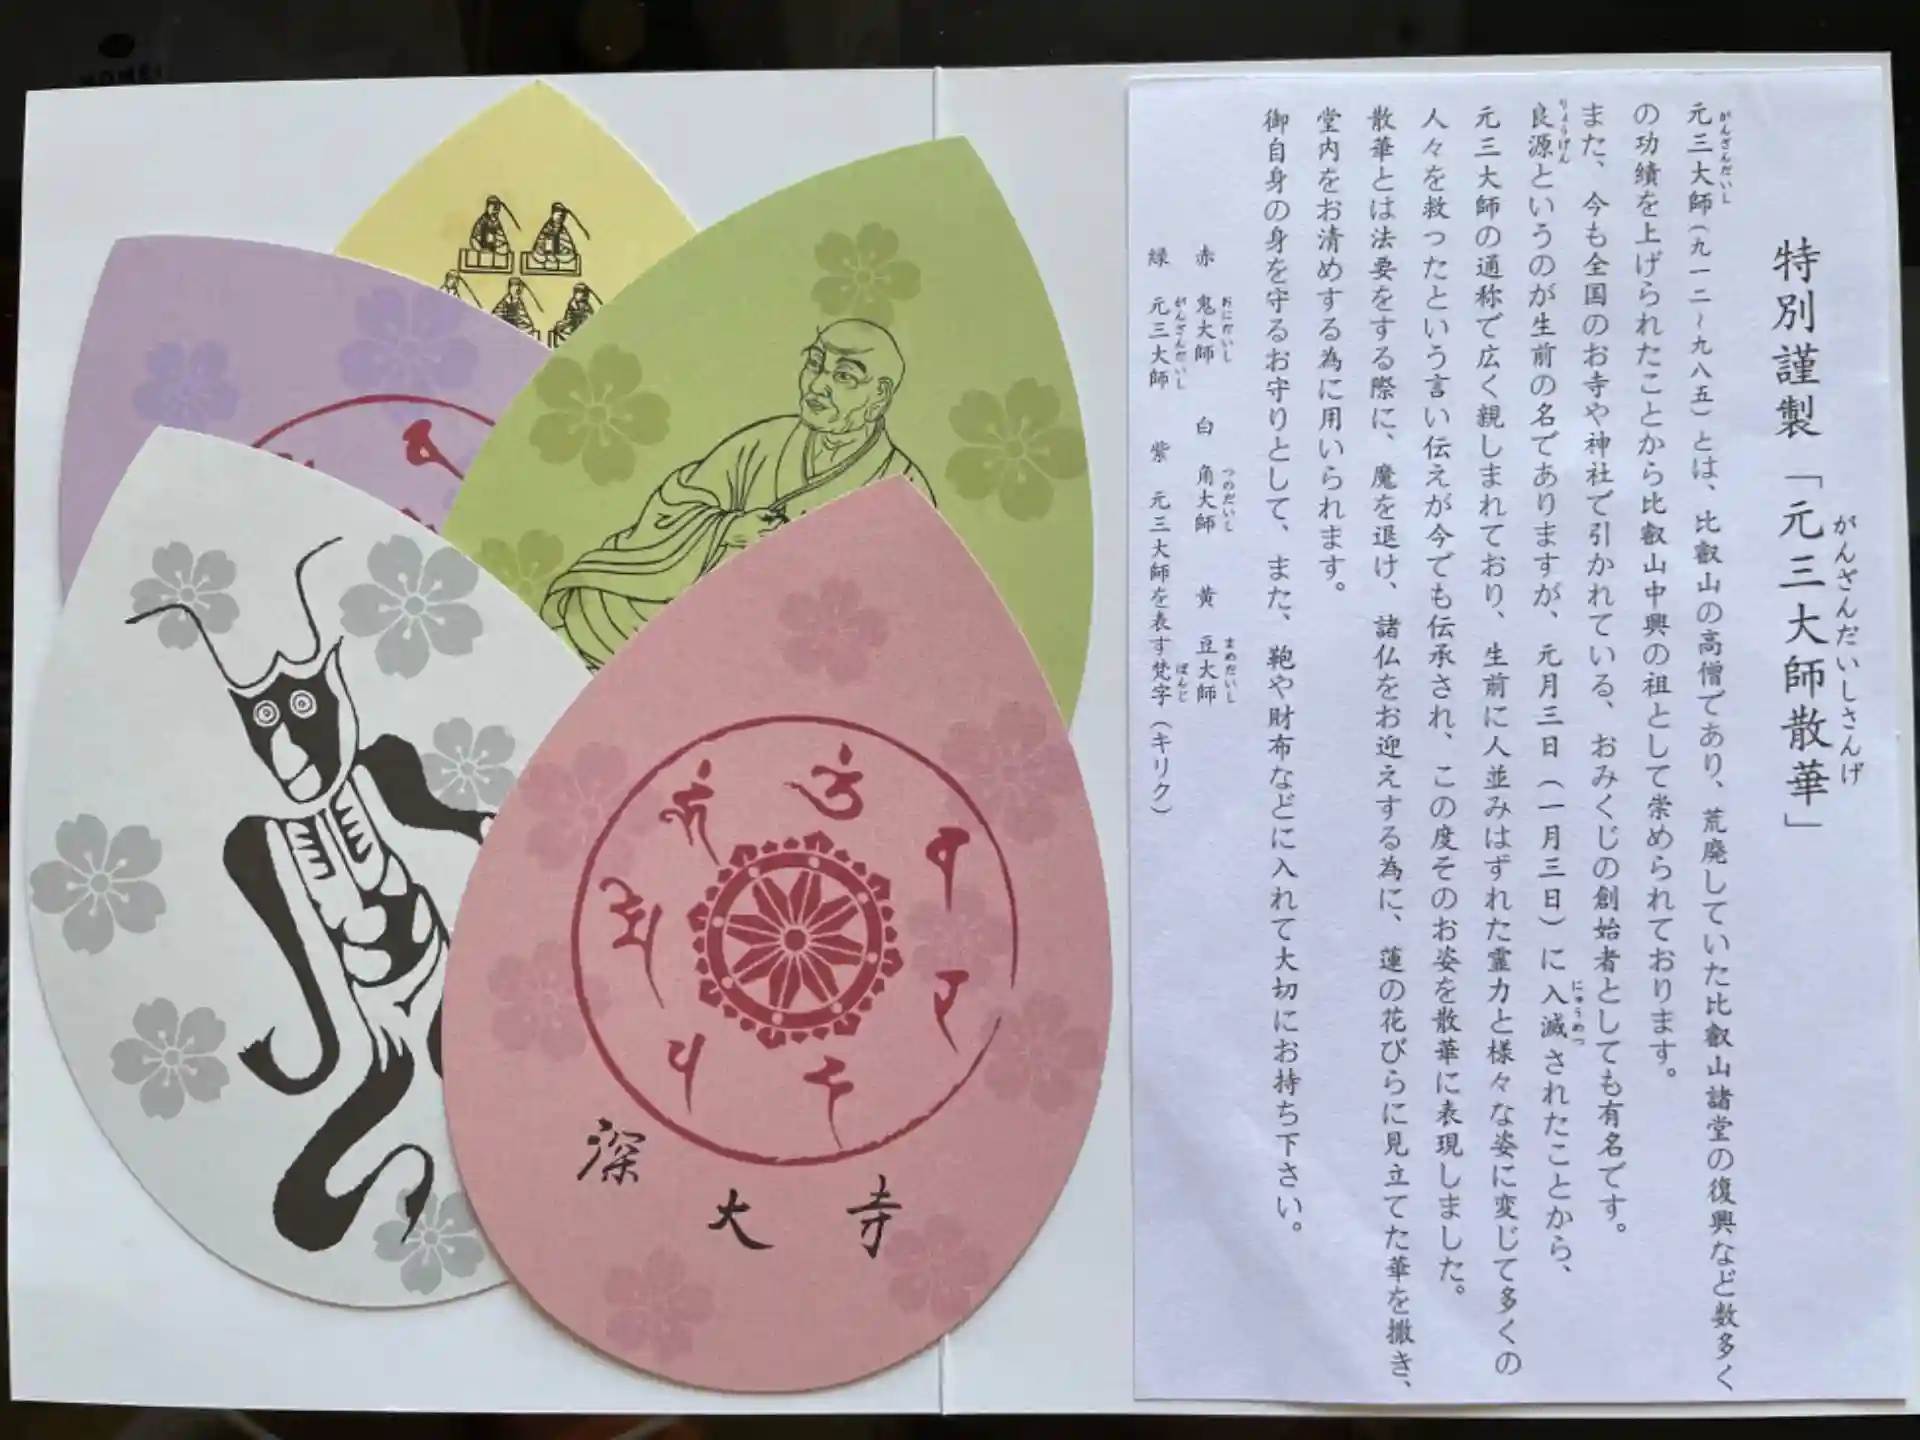 特別謹製「元三大師散華」
がんざんだいしさんげ
元三大師(九一二~九八五)とは、比叡山の高僧であり、荒廃していた比叡山諸堂の復興など数多く
がんざんだいし
の功績を上げられたことから比叡山中興の祖として崇められております。
また、今も全国のお寺や神社で引かれている、おみくじの創始者としても有名です。
良源というのが生前の名でありますが、元月三日(一月三日)に入滅されたことから、
りょうげん
にゅうめつ
元三大師の通称で広く親しまれており、生前に人並みはずれた霊力と様々な姿に変じて多くの
人々を救ったという言い伝えが今でも伝承され、この度そのお姿を散華に表現しました。
散華とは法要をする際に、魔を退け、諸仏をお迎えする為に、蓮の花びらに見立てた華を撒き、
堂内をお清めする為に用いられます。
御自身の身を守るお守りとして、また、鞄や財布などに入れて大切にお持ち下さい。
赤 鬼大師 白 角大師 黄 豆大師
おにだいし つのだいし まめだいし
緑 元三大師 紫 元三大師を表す梵字(キリク)
がんざんだいし ぼんじ
深大寺